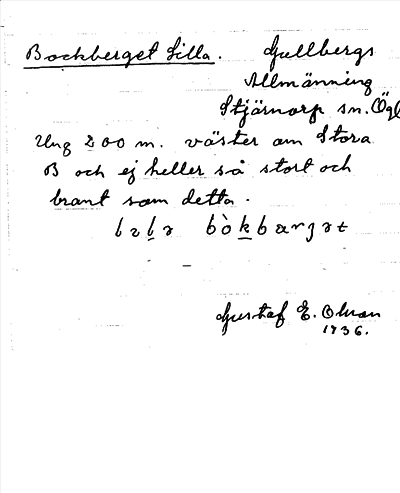 Bockberget Lilla. Gullbergs
Allmänning
Stjärnorp sn. Ögl
Ung 200 m. väster om Stora
B och ej heller så stort och
brant som detta.
Gustaf E. Olson
1936.